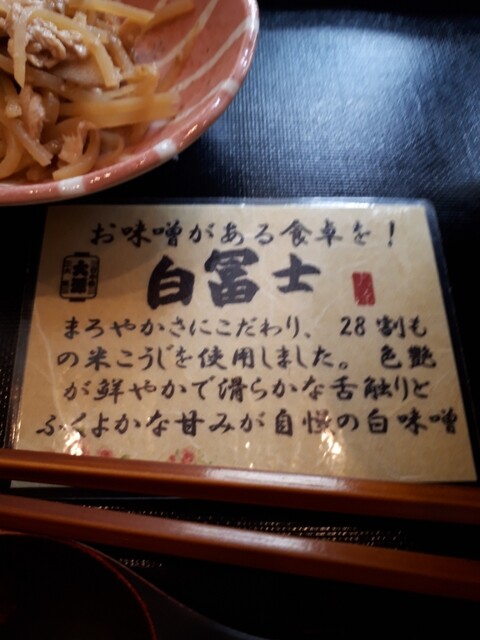 お味噌がある食卓を!
白冨士
まろやかさにこだわり、 28割も
の米こうじを使用しました。 色艶
が鮮やかで滑らかな舌触りと
ふくよかな甘みが自慢の白味噌